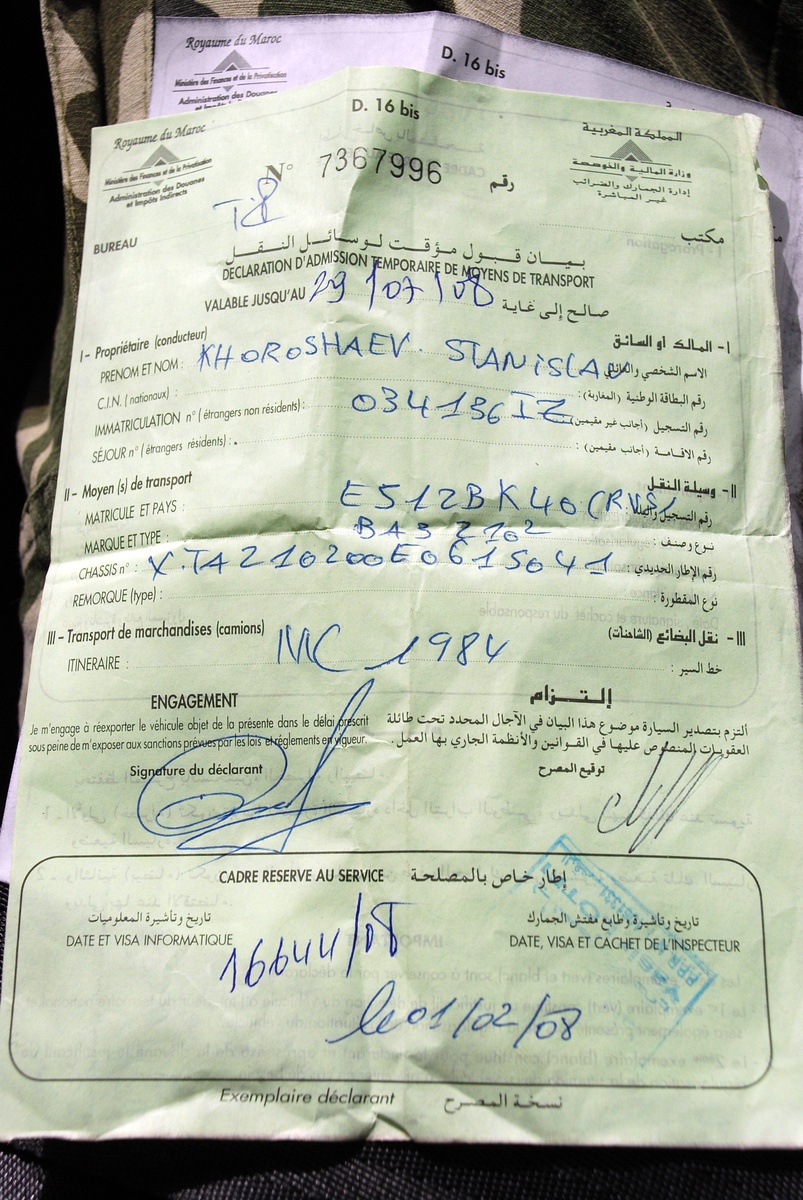 Royaume du Maroc
Ministère des Finances et de la Privatisation
Administration des Douanes
D. 16 bis
D. 16 bis
Royaume du Maroc
Ministère des Finances et de la Privatisation
Administration des Douanes
et Impôts Indirects
المملكة المغربية
وزارة المالية والخوصصة
إدارة الجمارك والضرائب
غير المباشرة
N° 7367996 رقم
BUREAU
مكتب
بيـان قبـول مؤقت لـوسـائـل النقـل
DECLARATION D'ADMISSION TEMPORAIRE DE MOYENS DE TRANSPORT
VALABLE JUSQU'AU 29/07/08 صالح إلى غاية
I - Propriétaire (conducteur)
I- المالك او السائق
PRENOM ET NOM : KHOROSHAEV. STANISLAV الاسم الشخصي والعائلي
C.I.N. ( nationaux) : رقم البطاقة الوطنية (المغاربة) :
IMMATRICULATION n° ( étrangers non résidents) : 034136IZ رقم التسجيل (أجانب غير مقيمين)
SÉJOUR n° ( étrangers résidents) : رقم الاقـامـة (أجانب مقيمين) :
II - Moyen (s) de transport
II- وسيلة النقل
MATRICULE ET PAYS : E512BK40 (RUS) رقم التسجيل والبلد
MARQUE ET TYPE : BA3 2102 نوع وصنف :
CHASSIS n° : X.TA210200E0615041 رقم الإطار الحديدي :
REMORQUE (type) : نوع المقطورة :
III - Transport de marchandises (camions)
III - نقل البضائع (الشاحنات)
ITINERAIRE : MC 1984 خط السير :
ENGAGEMENT
إلتـزام
Je m'engage à réexporter le véhicule objet de la présente dans le délai prescrit
sous peine de m'exposer aux sanctions prévues par les lois et réglements en vigueur.
ألتزم بتصدير السيارة موضوع هذا البيان في الآجال المحدد تحت طائلة
العقوبات المنصوص عليها في القوانين والأنظمة الجاري بها العمل.
Signature du déclarant
توقيع المصرح
CADRE RESERVE AU SERVICE إطار خاص بالمصلحة
تاريخ وتأشيرة المعلوميات
DATE ET VISA INFORMATIQUE
تاريخ وتأشيرة وطابع مفتش الجمارك
DATE, VISA ET CACHET DE L'INSPECTEUR
16644/08
le 01/02/08
Exemplaire déclarant نسخة المصرح